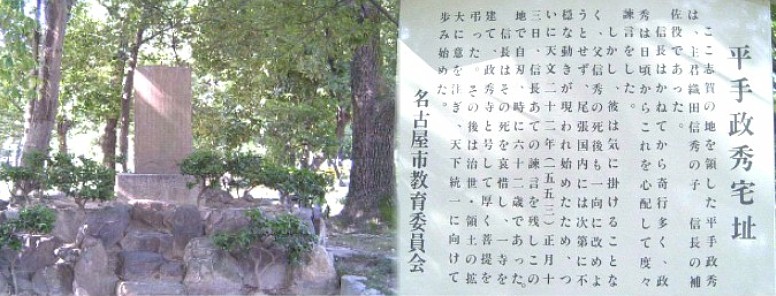 平手政秀宅址
ここ志賀の地を領した平手政秀
は、主君織田信秀の子 信長の補
佐役であった。
信長はかねてから奇行多く、政
秀は日頃からこれを心配して度々
諫言をした。
しかし、彼は気に掛けることな
く、父信秀の死後も一向に改めよ
うとせず、尾張国内には次第に不
穏な動きが現われ始めたため、つ
いに天文二十二年(一五五三)正月十
三日、信長あての諫言を残しこの
地で自刃、時に六十二歳であった。
信長はその死を哀惜し、一寺を
建て、政秀寺と号して厚く菩提を
弔った。その後は治世・領土の拡
大に意を注ぎ、天下統一に向けて
歩み始めた。
名古屋市教育委員会